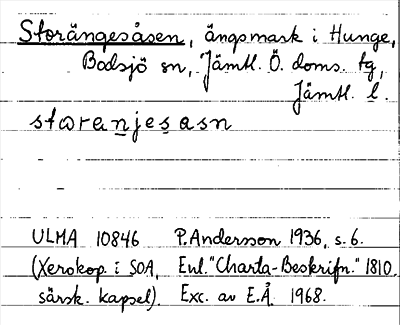 Storängesåsen, ängsmark i Hunge,
Bodsjö sn, Jämtl. Ö. doms. tg,
Jämtl. l.
storanjesasn
ULMA 10846 P. Andersson 1936, s. 6.
(Xerokop. i SOA, Enl. "Charta-Beskrifn." 1810.
särsk. kapsel). Exc. av E.Å. 1968.